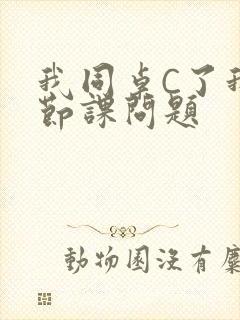 我同桌C了我
節課問題
動物園沒有麋